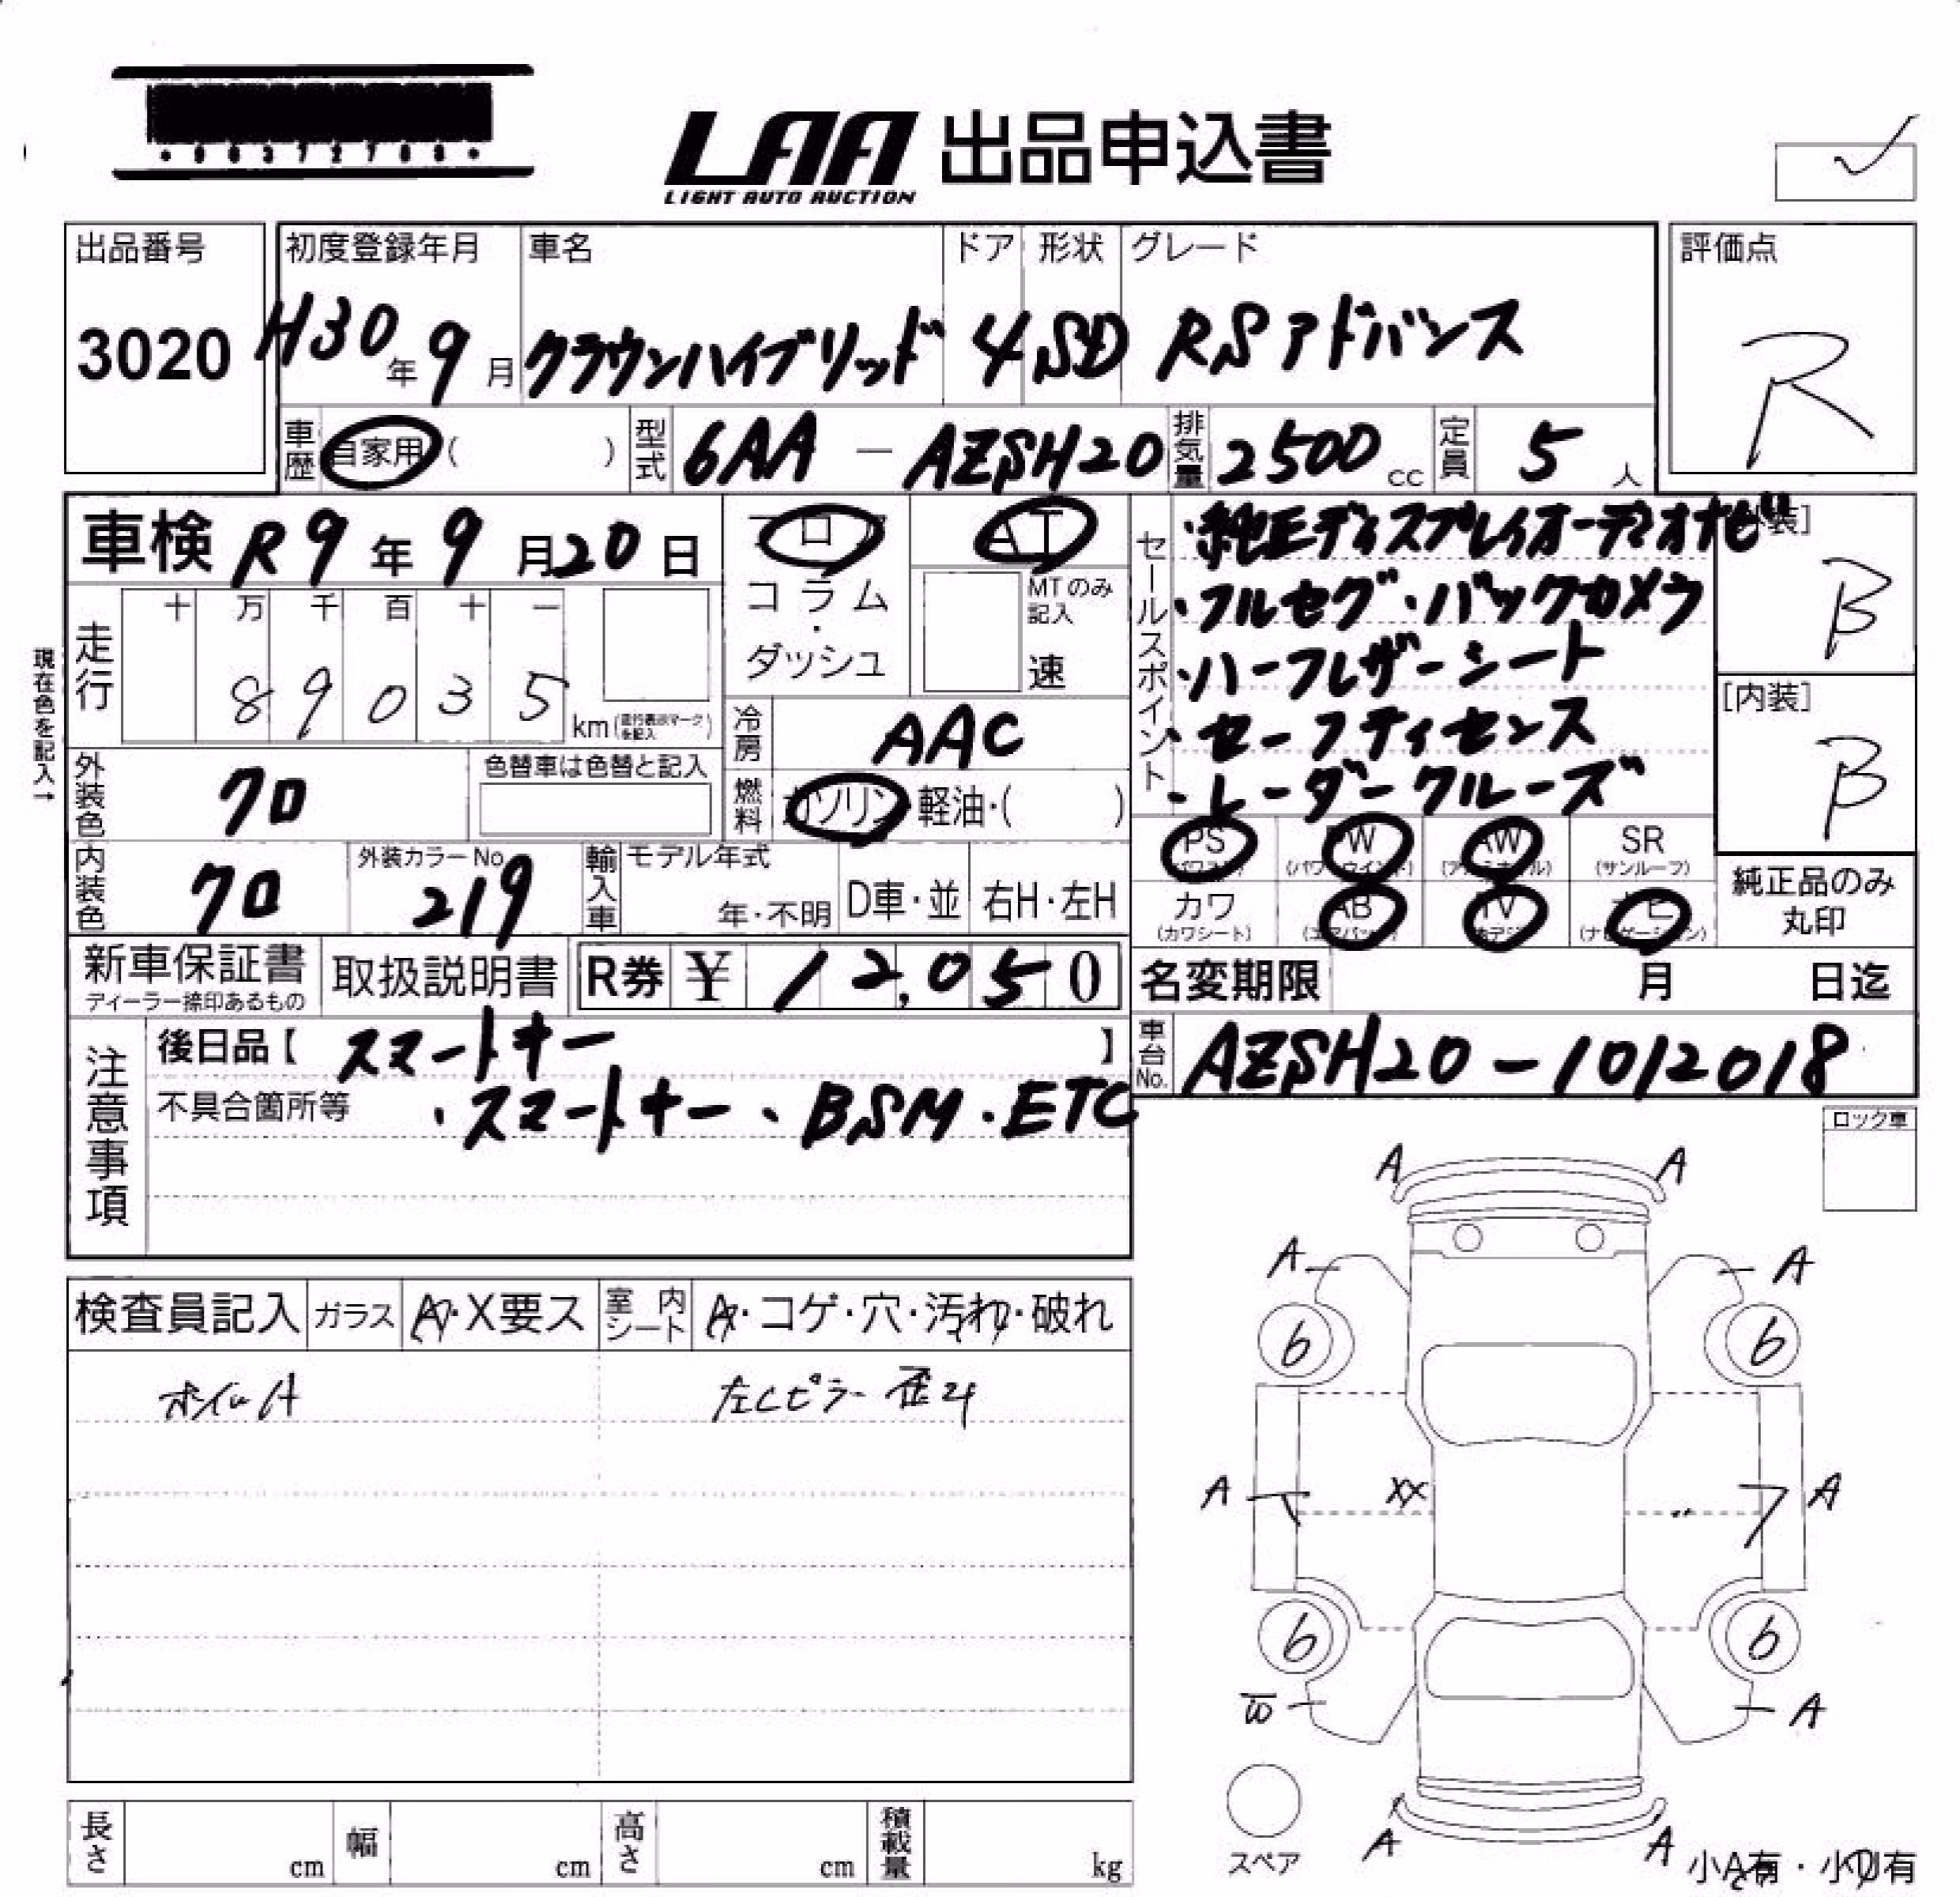 LAA 出品申込書
LIGHT AUTO AUCTION
出品番号 初度登録年月 車名 ドア 形状 グレード 評価点
3020 H30年9月 クラウンハイブリッド 4 SD RSアドバンス R
車歴 自家用 ( ) 型式 6AA - AZSH20 排気量 2500 cc 定員 5 人
車検 R9年9月20日 フロア AT
コラム・ダッシュ MTのみ記入 速
現在色を記入→
走行 十 万 千 百 十 一
89035 km (走行表示マークを記入)
冷房 AAC
外装色 クロ 色替車は色替と記入
燃料 ガソリン・軽油・( )
内装色 クロ 外装カラーNo. 219 輸入車 モデル年式 年・不明 D車・並 右H・左H
セールスポイント
・純正ディスプレイオーディオナビ
・フルセグ・バックカメラ
・ハーフレザーシート
・セーフティセンス
・レーダークルーズ
[外装] B
[内装] B
PS (パワステ) PW (パワーウインド) AW (アルミホイル) SR (サンルーフ)
カワ (カワシート) AB (エアバック) TV (地デジ) ナビ (ナビゲーション)
純正品のみ丸印
新車保証書 ディーラー捺印あるもの 取扱説明書 R券 ¥ 12,050
名変期限 月 日迄
車台No. AZSH20-1012018
注意事項
後日品【 スマートキー 】
不具合箇所等 ・スマートキー、BSM・ETC
ロック車
検査員記入 ガラス A・X要ス 室内シート A・コゲ・穴・汚れ・破れ
ホイルA 左Cピラー歪み
A A
A A
6 6
A XX A
6 6
A
A A
スペア
小A有・小U有
長さ cm 幅 cm 高さ cm 積載量 kg